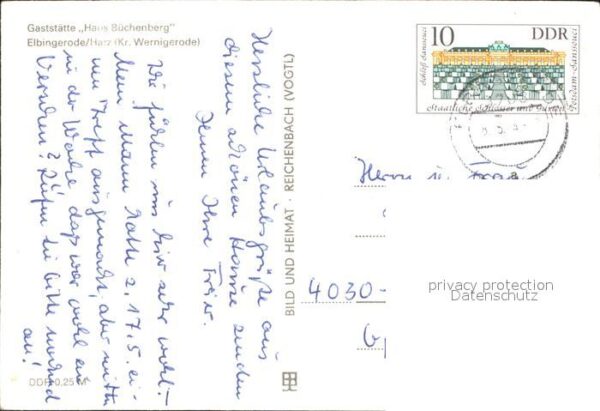 Gaststätte „Haus Büchenberg"
Elbingerode/Harz (Kr. Wernigerode)
Herzliche Urlaubsgrüße aus
diesem schönen Hause senden
Ihnen Ihre
Wir fühlen uns hier sehr wohl. –
Mein Mann hatte z. 17.5. ei-
nen Treff ausgemacht, aber mitten
in der Woche, das war wohl ein
Versehen? Rufen Sie bitte nochmal
an!
DDR 0,25 M
BILD UND HEIMAT · REICHENBACH (VOGTL)
10 DDR
Schloß Sanssouci
Staatliche Schlösser und Gärten
Potsdam-Sanssouci
Herrn u. Frau
4030-
privacy protection
Datenschutz